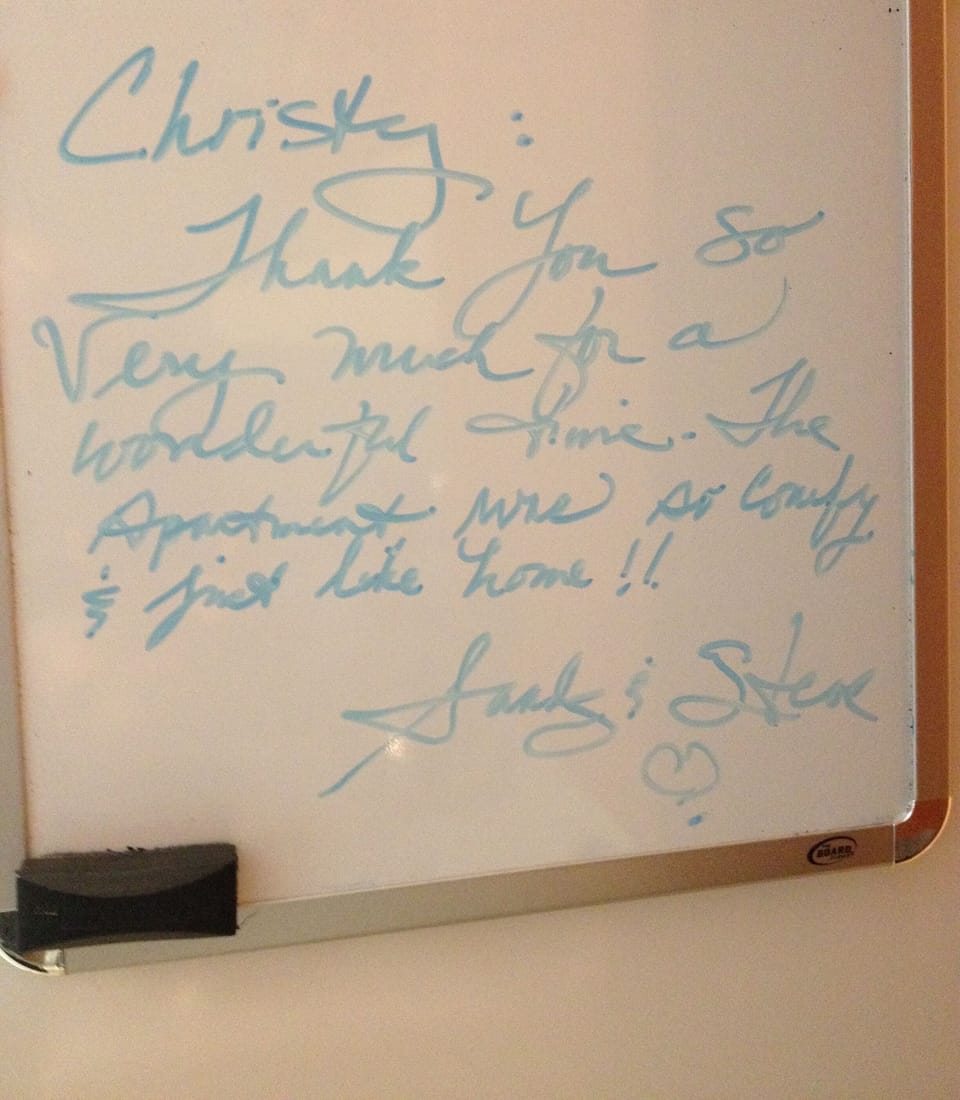 Christy :
Thank You so
Very much for a
wonderful time. The
Apartment was so comfy
& just like home !!
Sandy & Steve
THE
BOARD